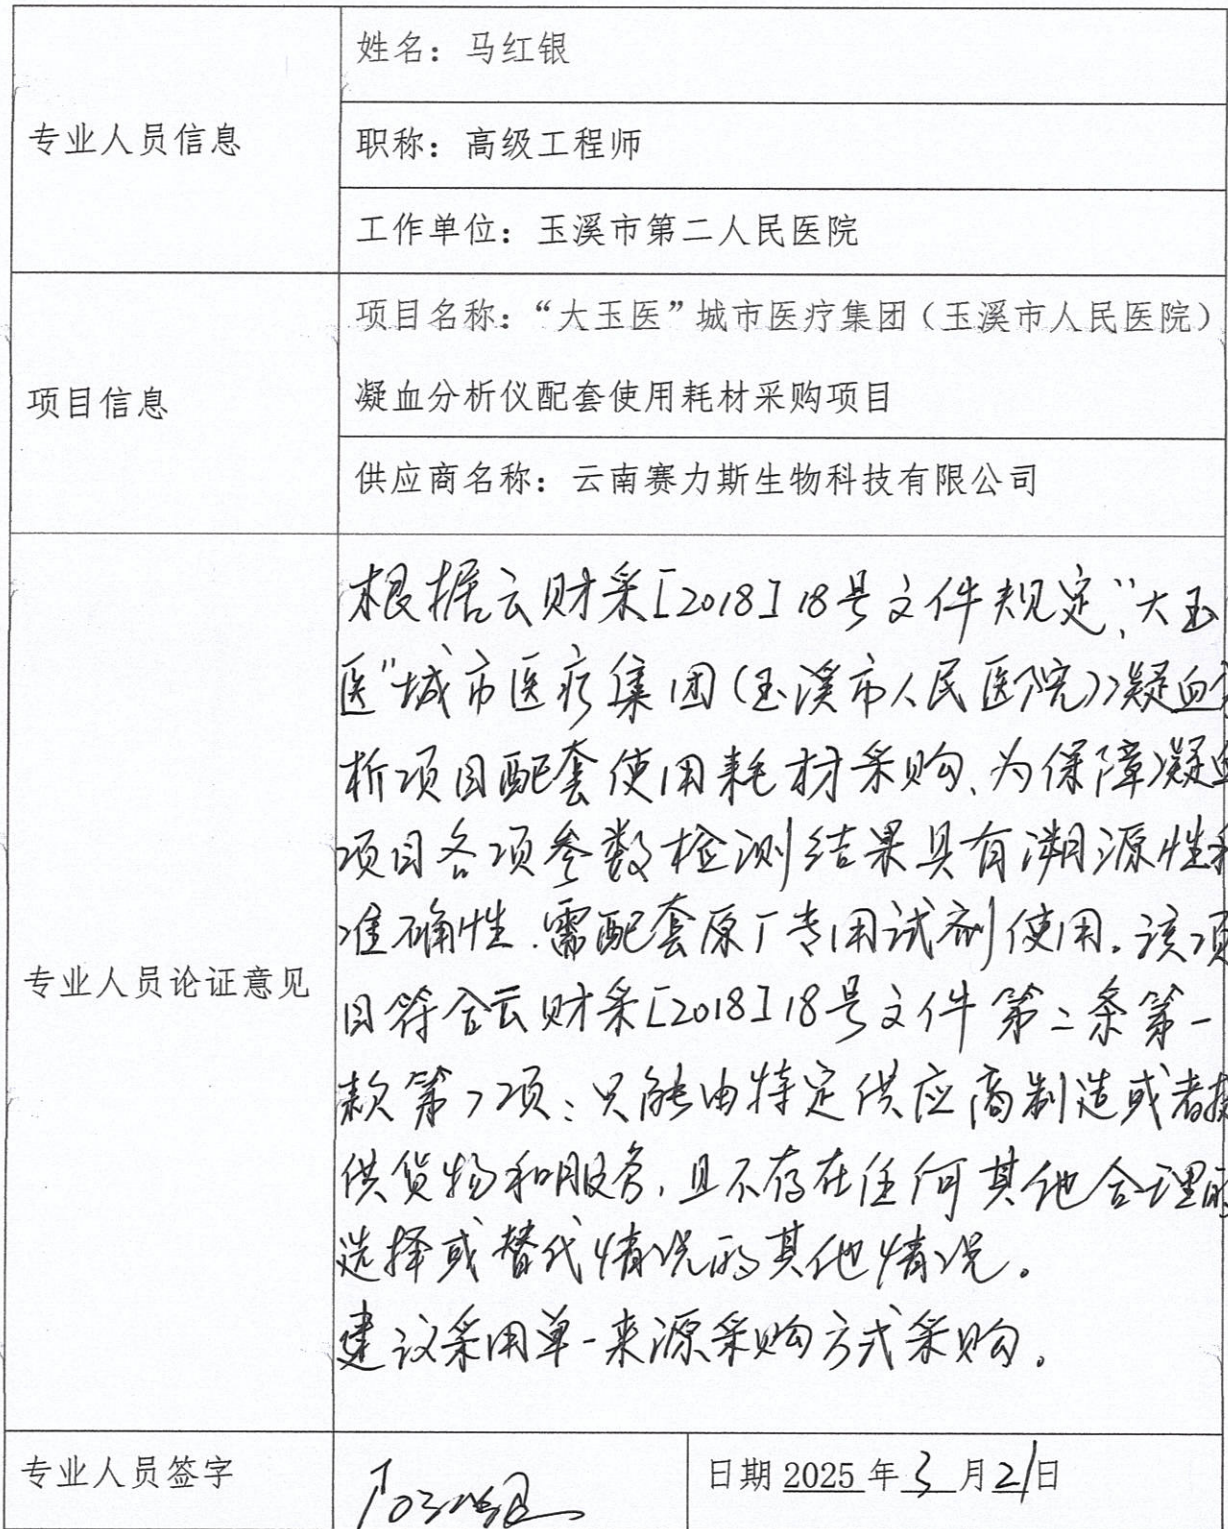 专业人员信息
姓名：马红银
职称：高级工程师
工作单位：玉溪市第二人民医院
项目信息
项目名称：“大玉医”城市医疗集团（玉溪市人民医院）
凝血分析仪配套使用耗材采购项目
供应商名称：云南赛力斯生物科技有限公司
专业人员论证意见
根据云财采[2018]18号文件规定，“大玉
医”城市医疗集团(玉溪市人民医院)凝血分
析项目配套使用耗材采购、为保障凝血
项目各项参数检测结果具有溯源性和
准确性.需配套原厂专用试剂使用。该项
目符合云财采[2018]18号文件第二条第一
款第7项：只能由特定供应商制造或者提
供货物和服务，且不存在任何其他合理的
选择或替代情况的其他情况。
建议采用单一来源采购方式采购。
专业人员签字
日期 2025 年 3 月 21 日